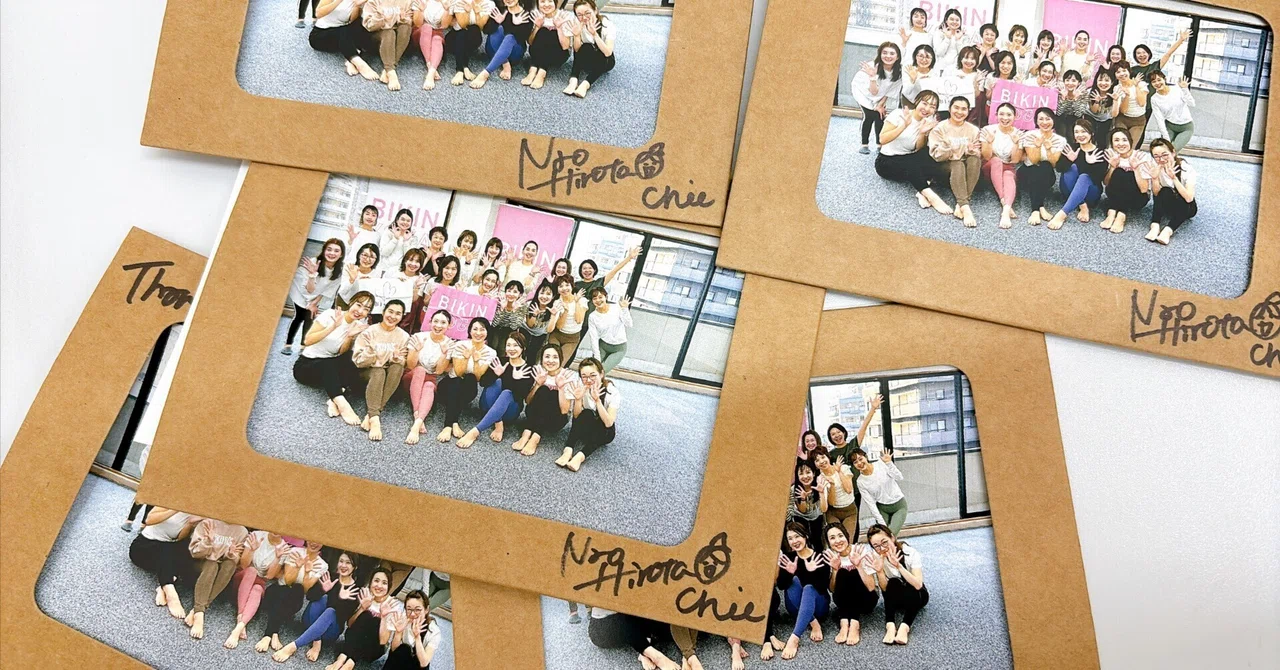 Nao
Hirota
Chie
BIKIN
BIKIN
BIKIN
Nao
Hirota
Ch
Than
BIKIN
BIKIN
BIKIN
Nao
Hirota
Chie